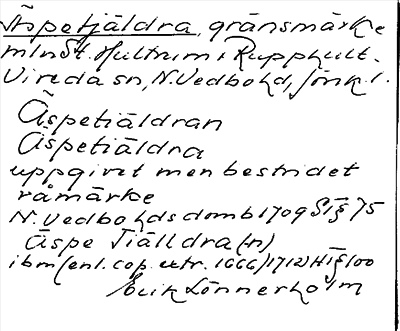 Äspetjäldra, gränsmärke
mln St. Hultrum & Rupphult.
Vireda sn, N. Vedbo hd, Jönk. l.
Äspetiäldran
Äspetiäldra
uppgivet men bestridet
råmärke
N. Vedbo hds domb 1709 St § 75
Äspe Tiälldra(n)
ibm (enl. cop. extr. 1666) 1712 Ht § 100
Erik Lönnerholm